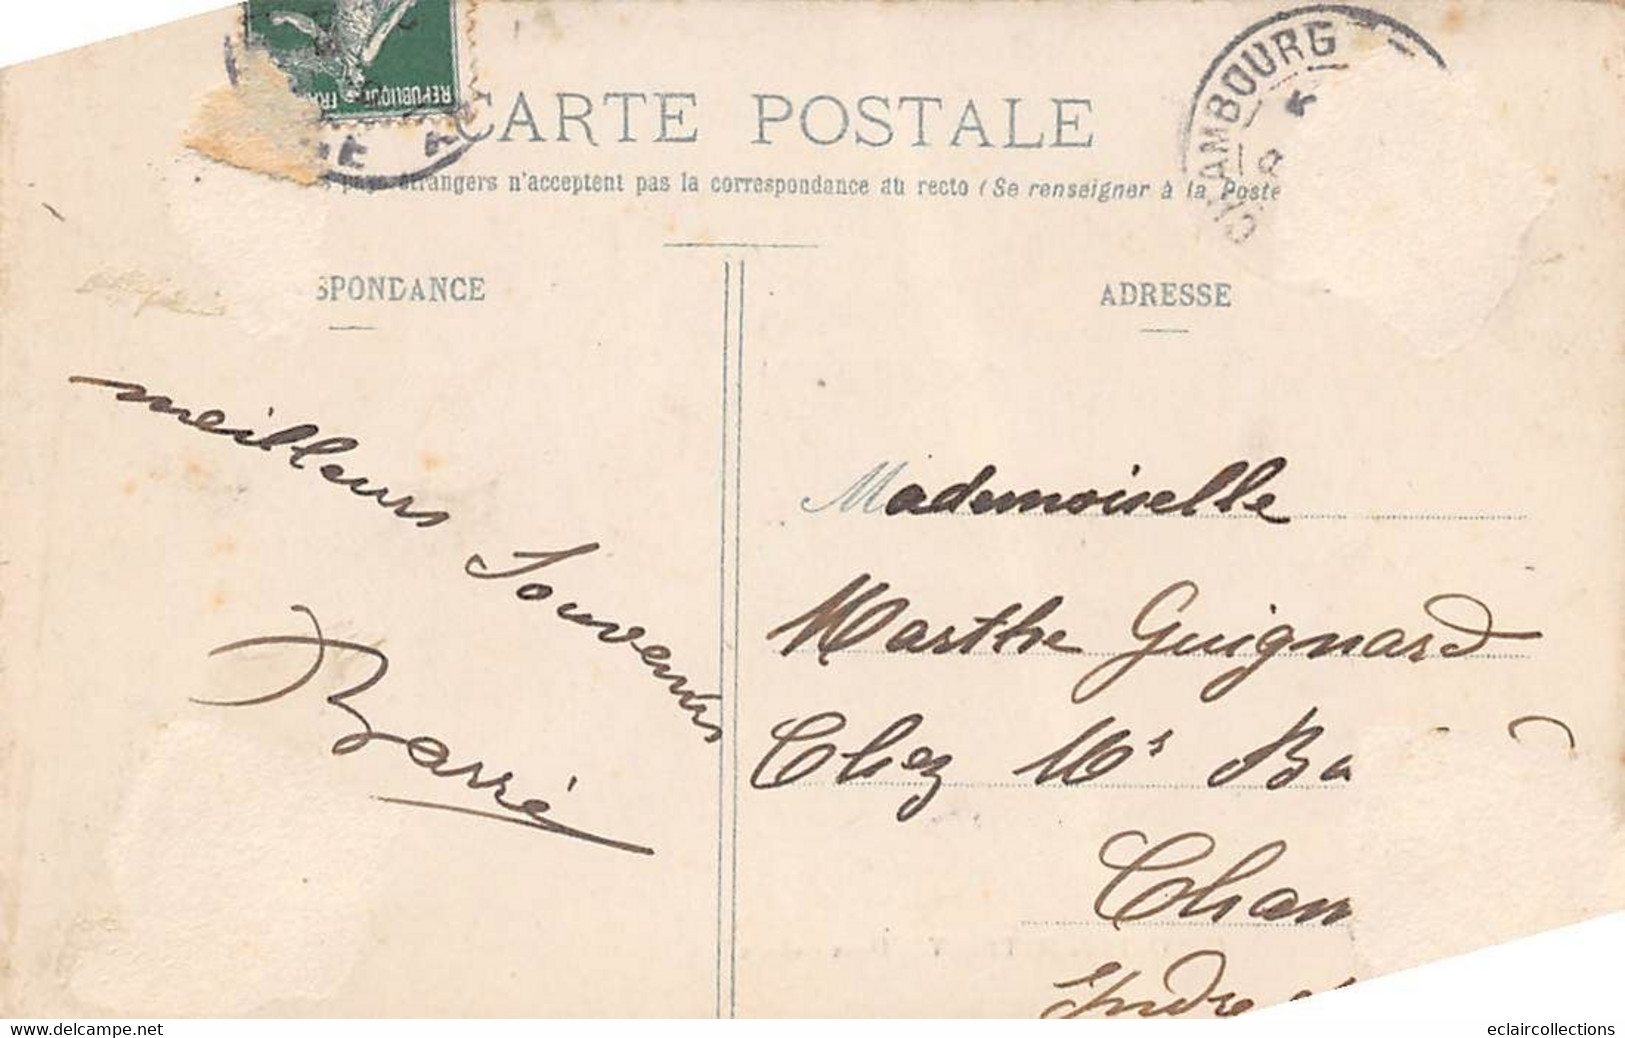 RÉPUBLIQUE FRA
CARTE POSTALE
CHAMBOURG
étrangers n'acceptent pas la correspondance au recto (Se renseigner à la Poste
SPONDANCE
ADRESSE
meilleurs Souvenirs
Barré
Mademoiselle
Marthe Guignard
Chez Mr Ba
Cham
Indre
www.delcampe.net
eclaircollections